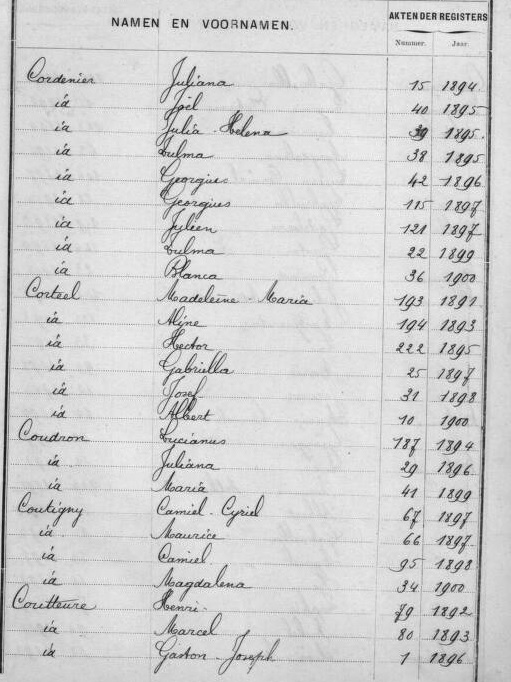 NAMEN EN VOORNAMEN.
AKTEN DER REGISTERS
Nummer. Jaar.
Cordenier Juliana 15 1894
id Joël 40 1895
id Julia-Helena 39 1895
id Zulma 38 1895
id Georgius 42 1896
id Georgius 115 1897
id Julien 121 1897
id Zulma 22 1899
id Blanca 36 1900
Corteel Madeleine-Maria 193 1891
id Aline 194 1893
id Hector 222 1895
id Gabriella 25 1897
id Josef 31 1898
id Albert 10 1900
Coudron Lucianus 187 1894
id Juliana 29 1896
id Maria 41 1899
Coutigny Camiel-Cyriel 67 1897
id Maurice 66 1897
id Camiel 95 1898
id Magdalena 34 1900
Coutteure Henri 79 1892
id Marcel 80 1893
id Gaston-Joseph 1 1896